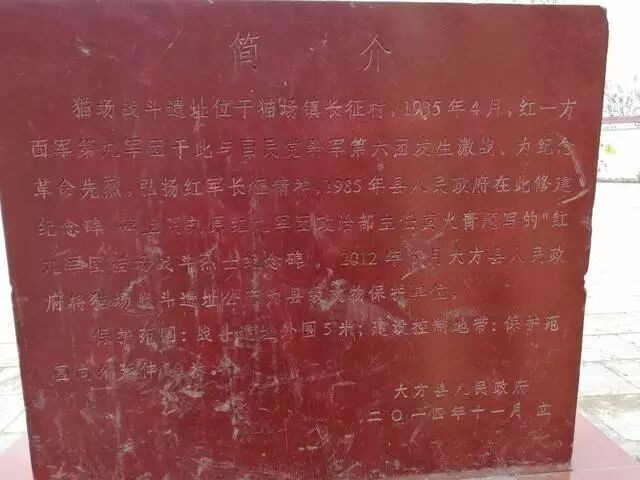 简介
猫场战斗遗址位于猫场镇长征村，1935年4月，红一方
面军第九军团于此与国民党黔军第六团发生激战。为纪念
革命先烈，弘扬红军长征精神，1985年县人民政府在此修建
纪念碑 碑上 原红九军团政治部主任黄火青题写的“红
九军团猫场战斗烈士纪念碑”。2012年 月大方县人民政
府将猫场战斗遗址公布为县级文物保护单位。
保护范围：战斗遗址外围5米；建设控制地带：保护范
围向外延伸10米。
大方县人民政府
二〇一四年十一月 立